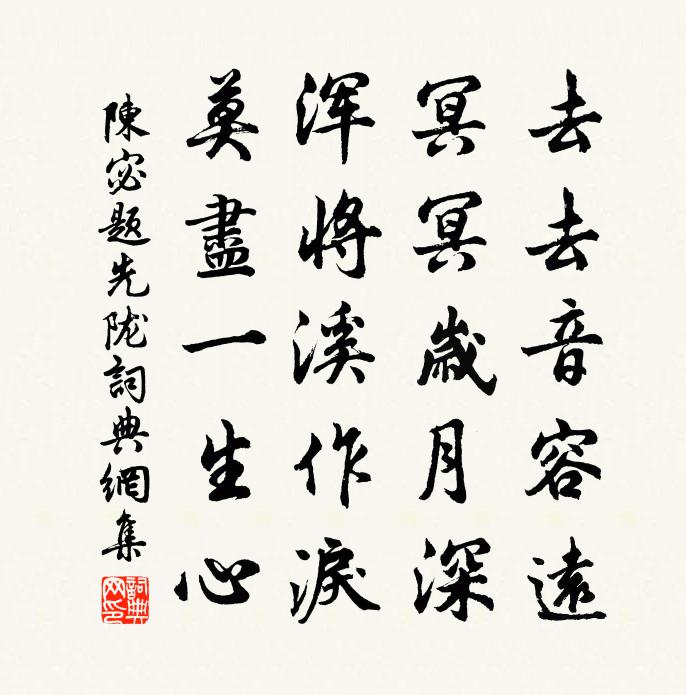 去去音容遠
冥冥歲月深
浑將溪作淚
莫盡一生心
陳宓題先陇詞典網集
詞典網印